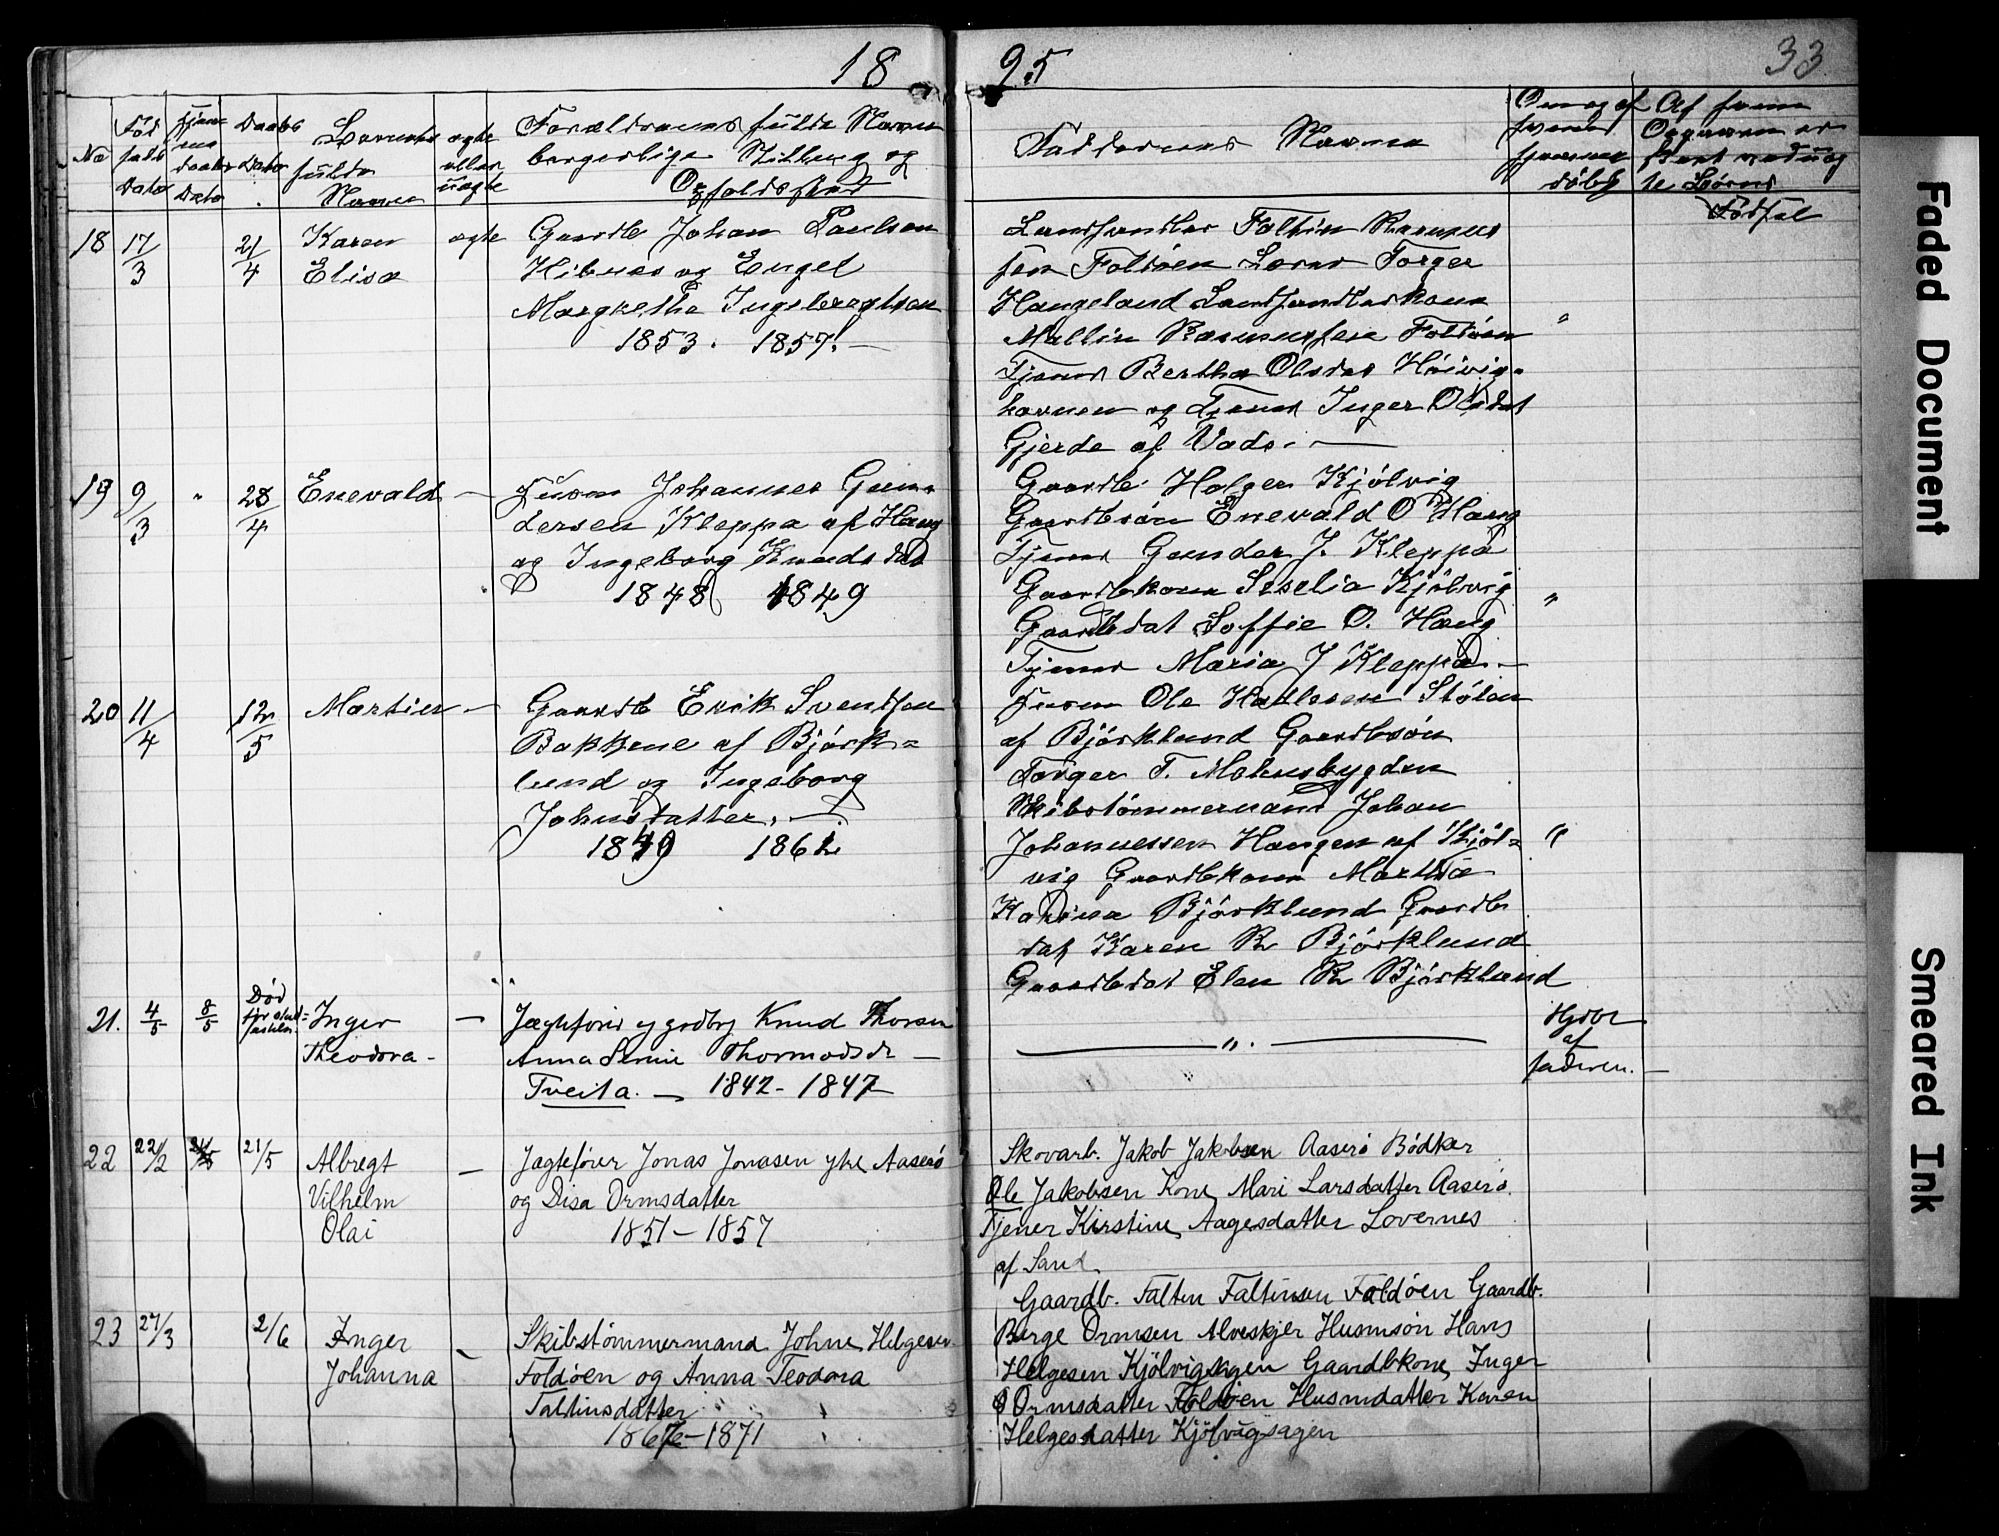 18 95 33
No
Fød
sels
Dato
Hjem
me
daabs
Dato
Daabs
Dato
Barnets
fulde
Navn
ægte
eller
uægte
Forældrenes fulde Navne
borgerlige Stilling og
Opholdssted
Faddernes Navne
Om og af
hvem
hjemme
døbt
Af hvem
Opgaven er
skeet ved uæg
te Børns
Fødsel
18 17/3 21/4 Karen ægte Gaardb Johan Paulsen
Elisa Hibnes og Engel
Margrethe Ingebregtsen
1853. 1857. —
Landhandler Faltin Rasmus
sen Foldøen Lærer Torger
Haugeland Landhandlerkone
Mallin Rasmussen Foldøen "
Tjener Bertha Olsdat Høivig-
havnen og Tjener Inger Olsdat
Gjerde af Vads. —
19 9/3 " 28/4 Enevald — Husm Johannes Gun-
dersen Kleppa af Haug
og Ingeborg Knudsdat
1848 1849
Gaardb. Holger Kjölvig
Gaardbsön Enevald O Haug
Tjener Gunder J. Kleppa
Gaardbkone Seselia Kjölvig "
Gaardbdat Soffie O. Haug
Tjener Maria J Kleppa. —
20 11/4 12/5 Martin — Gaardb Erik Svendsen
Bakkene af Björk=
lund og Ingeborg
Johnsdatter. —
1849 1862
Husm Ole Hatlesen Stölen
af Björklund Gaardbsön
Torger T. Mehusbygden
Skibstömmermand Johan
Johannessen Haugen af Kjöl= "
vig Gaardbkone Martha
Karina Björklund Gaardb
dat Karen R Björklund
Gaardbdat Elen R Björklund
21. 4/5 8/5 Død
før stad=
fæstelse. Inger
Theodora — Jægtefører og grdbr Knud Thorsen
Anna Serine Thormodsdr —
Tveita. — 1842 - 1847
— ". —
Hjdbt
af
faderen. —
22 22/2 21/5 Albregt
Vilhelm
Olai — Jægtefører Jonas Jonasen ytre Aaserö
og Disa Ormsdatter
1851 - 1857
Skovarb. Jakob Jakobsen Aaserö Bödker
Ole Jakobsen Kone Mari Larsdatter Aaserö.
Tjener Kirstine Aagesdatter Lovernes
af Sand.
23 27/3 2/6 Inger
Johanna — Skibstömmermand Johne Helgesen
Foldöen og Anna Teodora
Faltinsdatter
1867 - 1871
Gaardb. Falten Faltinsen Foldöen Gaardb.
Berge Ormsen Alveskjer Husmsön Hans
Helgesen Kjölvigsagen Gaardbkone Inger
Ormsdatter Foldöen Husmdatter Karen
Helgesdatter Kjölvigsagen
Faded Document
Smeared Ink